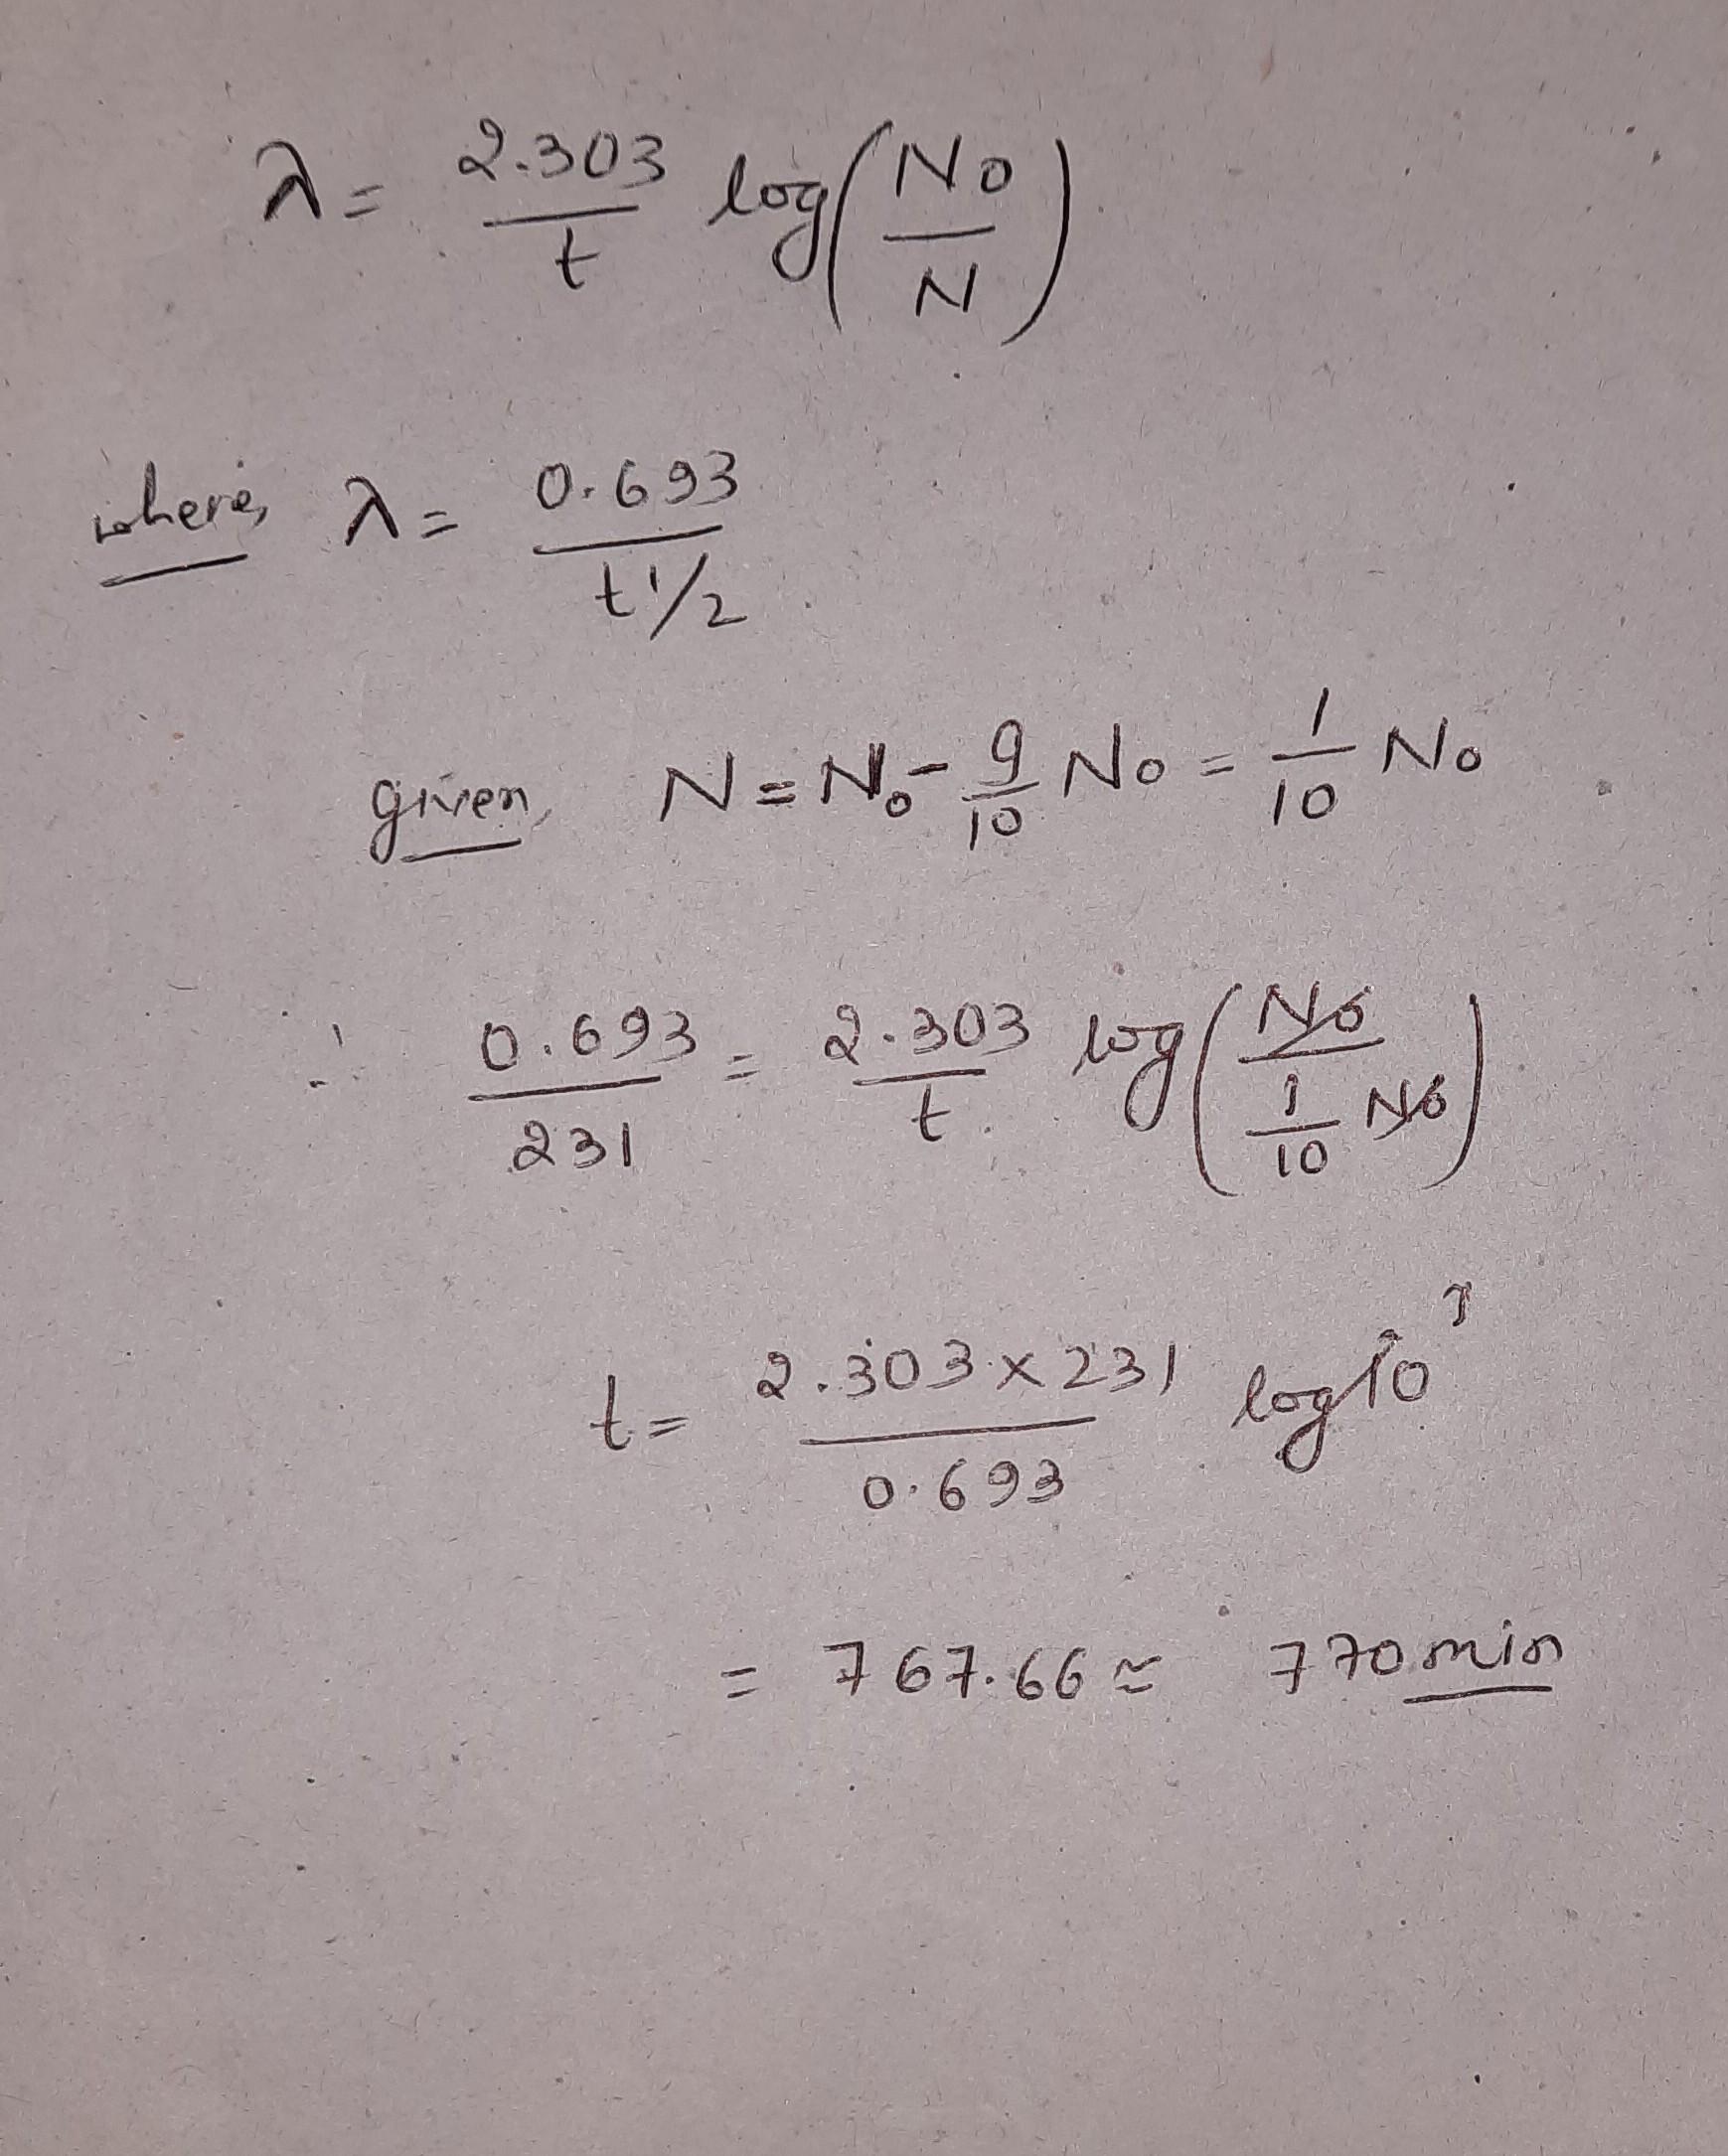 λ = 2.303/t log(N₀/N)
where, λ = 0.693/t1/2
given, N = N₀ - 9/10 N₀ = 1/10 N₀
∴ 0.693/231 = 2.303/t. log(N₀/(1/10 N₀))
t = 2.303 x 231/0.693 log 10 1
= 767.66 ≈ 770 min